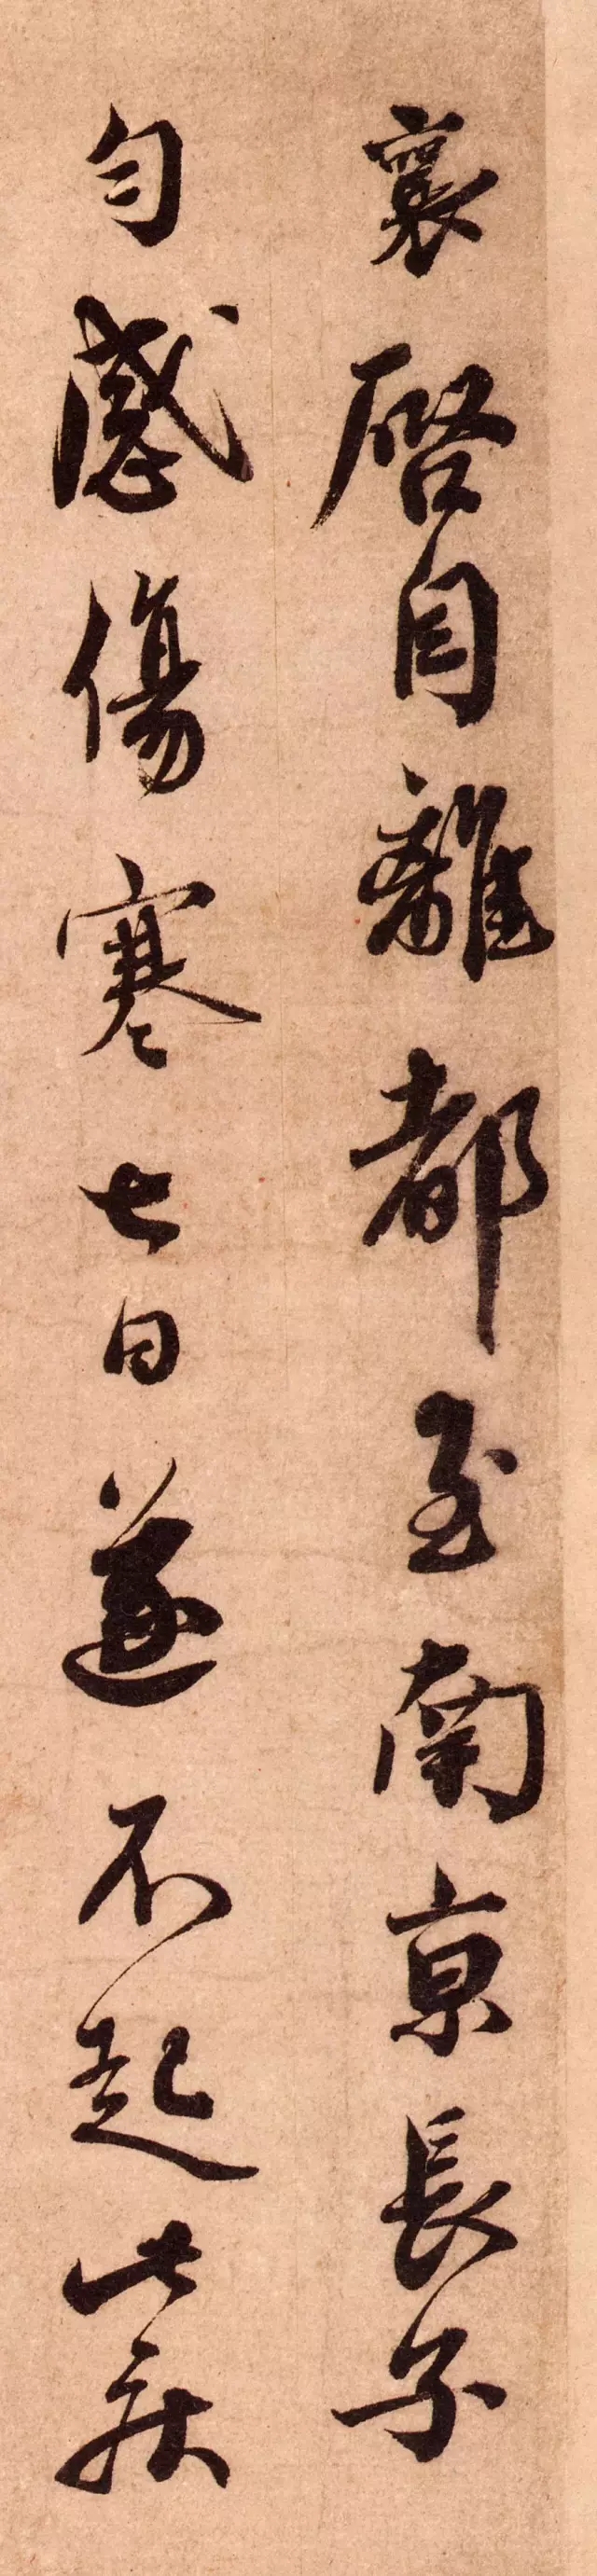 襄啓自離都至南京長子
匀感傷寒七日遂不起此疾